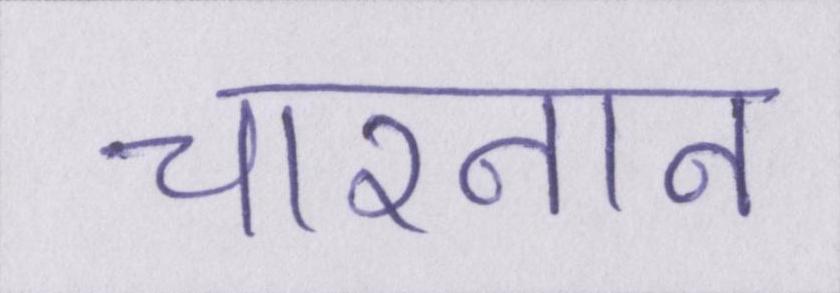 चारनान